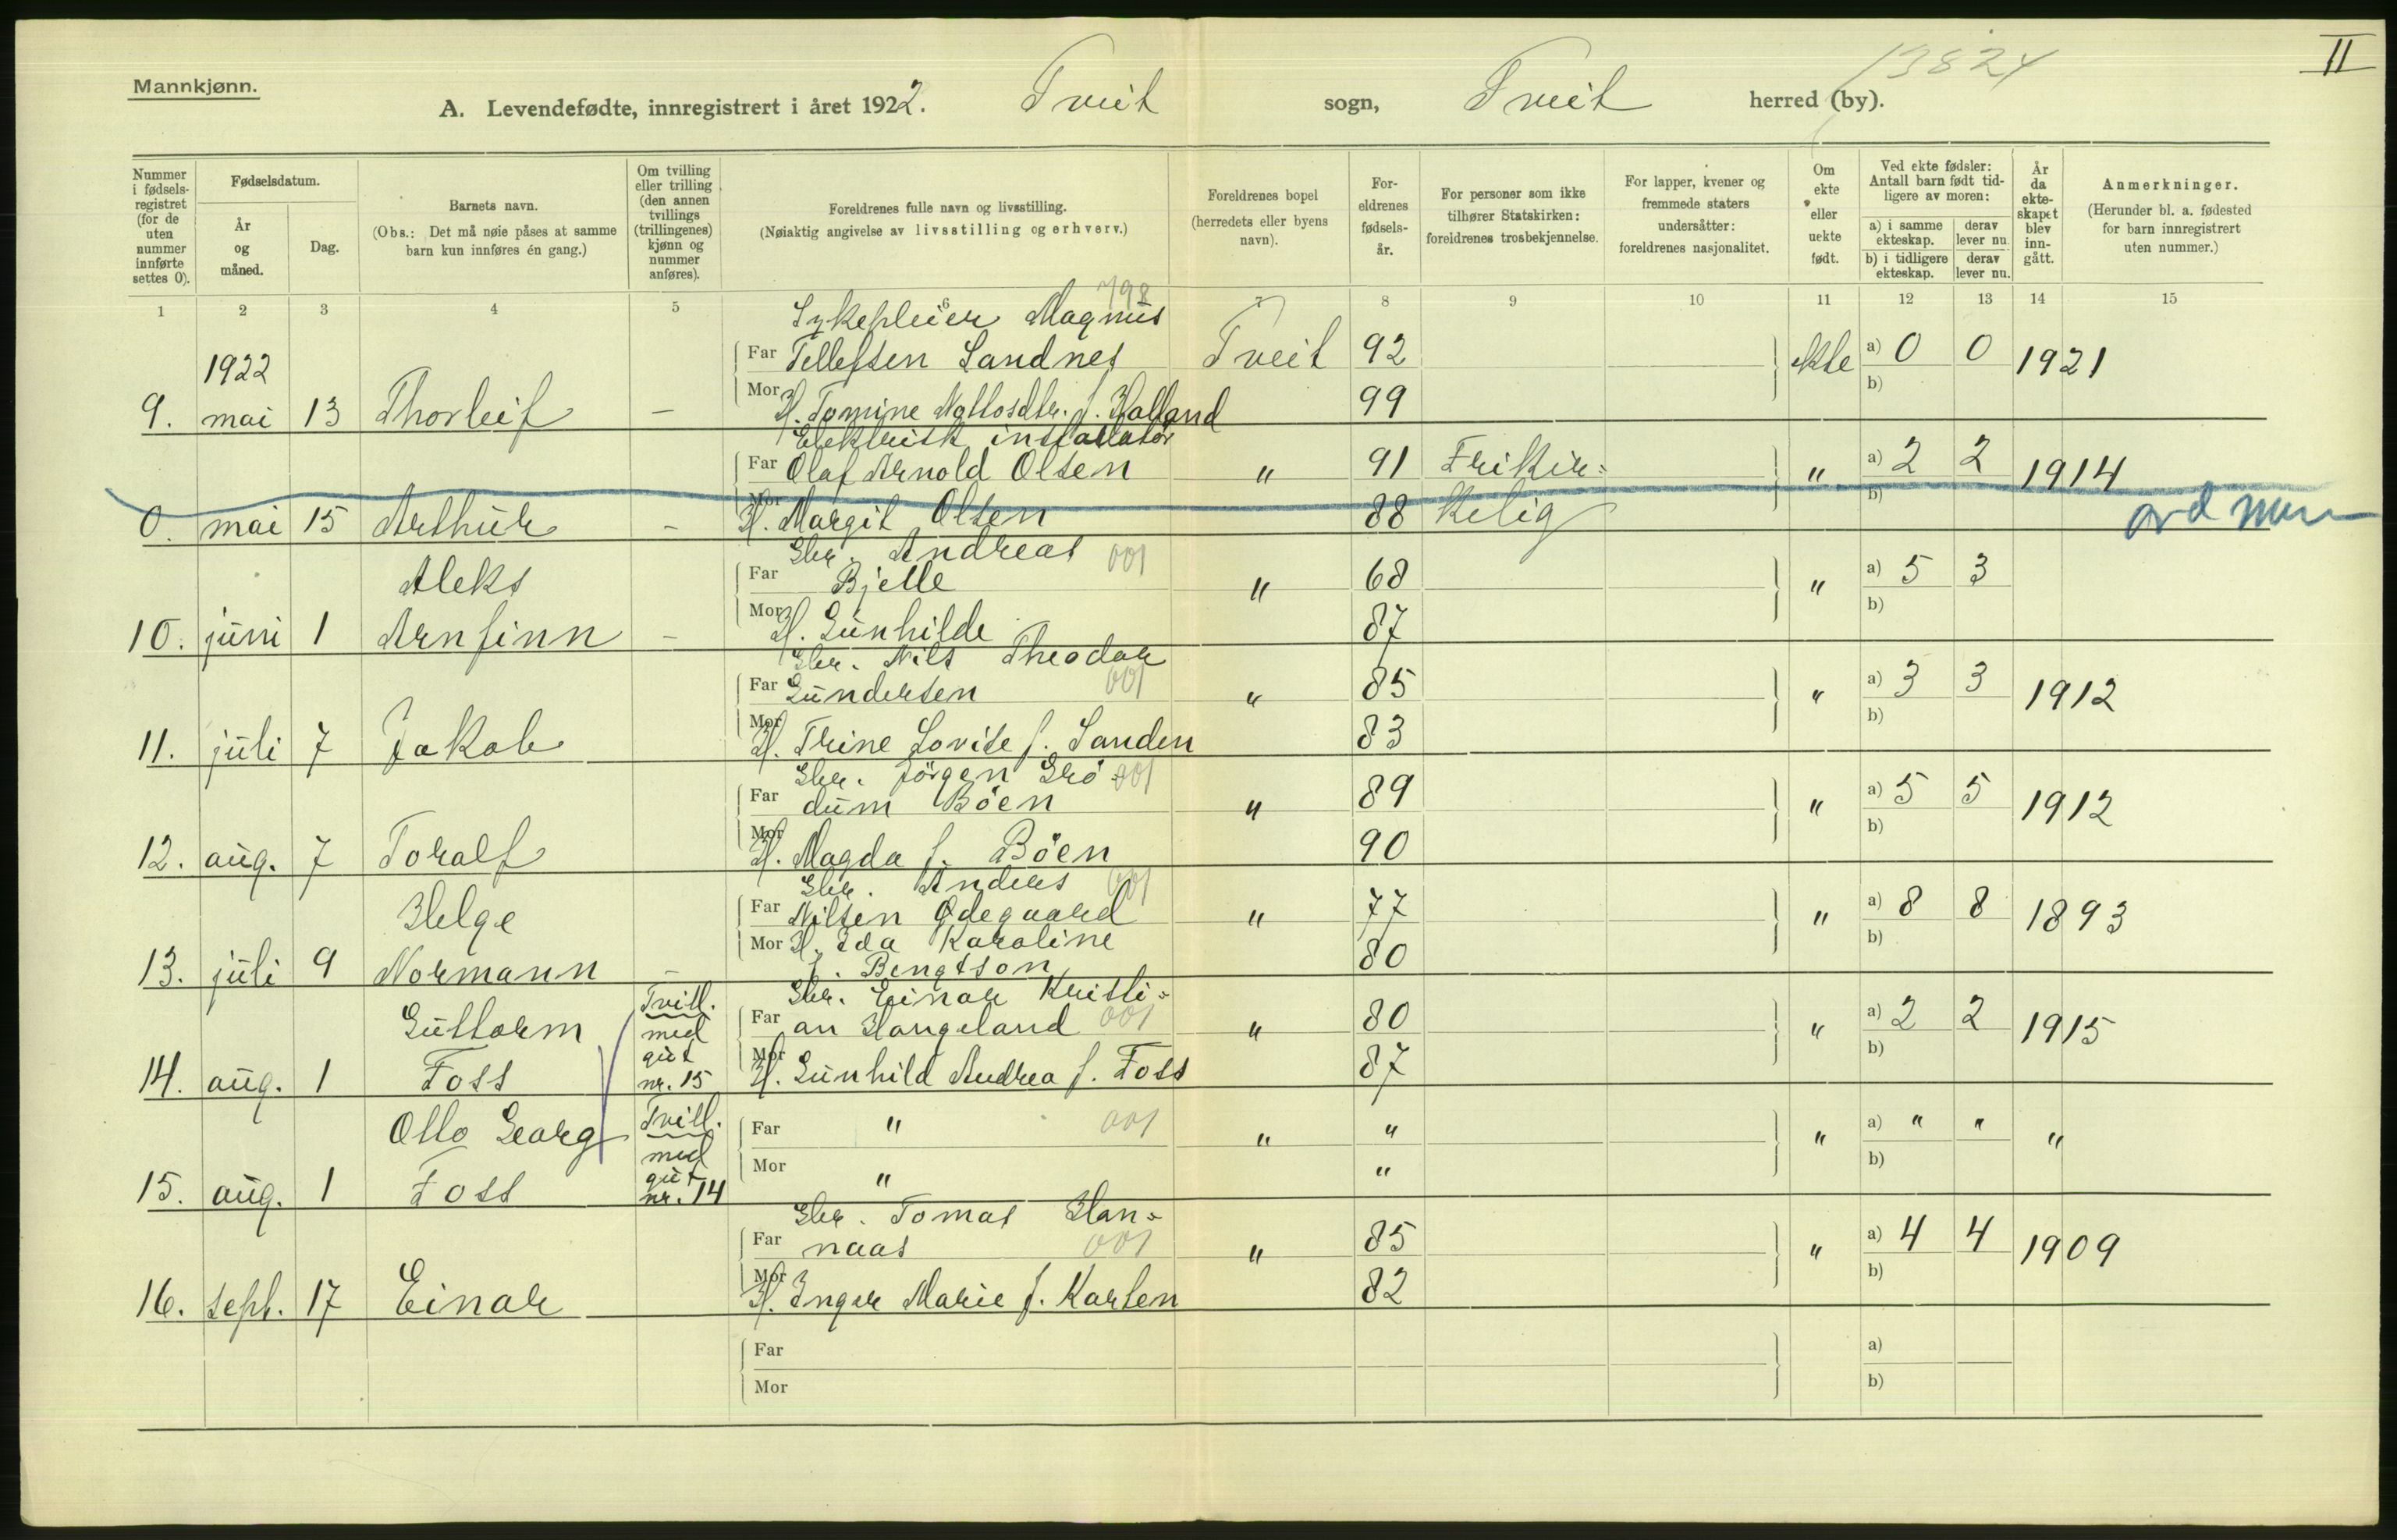 13824
II
Mannkjønn.
A. Levendefødte, innregistrert i året 1922. Tveit sogn, Tveit herred (by).
Nummer i fødsels-registret (for de uten nummer innførte settes 0).
Fødselsdatum.
År og måned.
Dag.
Barnets navn.
(Obs.: Det må nøie påses at samme barn kun innføres én gang.)
Om tvilling eller trilling (den annen tvillings (trillingenes) kjønn og nummer anføres).
Foreldrenes fulle navn og livsstilling.
(Nøiaktig angivelse av livsstilling og erhverv.)
Foreldrenes bopel (herredets eller byens navn).
For-eldrenes fødsels-år.
For personer som ikke tilhører Statskirken: foreldrenes trosbekjennelse.
For lapper, kvener og fremmede staters undersåtter: foreldrenes nasjonalitet.
Om ekte eller uekte født.
Ved ekte fødsler: Antall barn født tid-ligere av moren:
a) i samme ekteskap.
derav lever nu.
b) i tidligere ekteskap.
derav lever nu.
År da ekte-skapet blev inn-gått.
Anmerkninger.
(Herunder bl. a. fødested for barn innregistrert uten nummer.)
1 2 3 4 5 6 7 8 9 10 11 12 13 14 15
798
Sykepleier Magnus
1922
Far Tellefsen Sandnes Tveit 92 ekte a) 0 0 1921
b)
9. mai 13 Thorleif – Mor H. Tomine Nottosdtr. f. Holland 99
Elektrisk installatør
Far Olaf Arnold Olsen " 91 Frikir= " a) 2 2 1914
b)
0. mai 15 Arthur – Mor H. Margit Olsen 88 kelig
Gbr. Andreas 001
Aleks Far Bjelle " 68 " a) 5 3
b)
10. juni 1 Arnfinn – Mor H. Gunhilde 87
Gbr. Nils Theodor
Far Gundersen 001 " 85 " a) 3 3 1912
b)
11. juli 7 Jakob Mor H. Trine Lovise f. Sanden 83
Gbr. Jörgen Grö= 001
Far dum Böen " 89 " a) 5 5 1912
b)
12. aug. 7 Toralf Mor H. Magda f. Böen 90
Gbr. Anders 001
Helge Far Nilsen Ødegaard " 77 " a) 8 8 1893
b)
Mor H. Ida Karoline 80
13. juli 9 Normann – f. Bengtson
Tvill. Gbr. Einar Kristi=
Guttorm med Far an Haugeland 001 " 80 " a) 2 2 1915
gut b)
14. aug. 1 Foss nr. 15 Mor H. Gunhild Andrea f. Foss 87
Otto Georg Tvill. Far " 001 " " " a) " " "
med Mor " " b)
gut
15. aug. 1 Foss nr. 14
Gbr. Tomas Han=
Far naas 001 " 85 " a) 4 4 1909
b)
16. sept. 17 Einar Mor H. Inger Marie f. Karlsen 82
Far a)
Mor b)